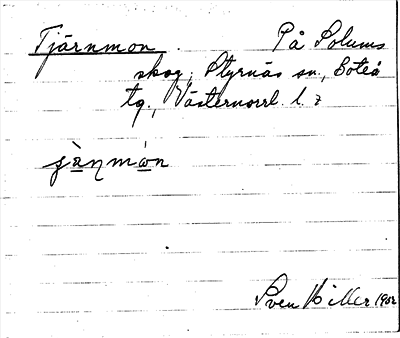 Tjärnmon. På Solums
skog, Styrnäs sn., Boteå
tg., Västernorrl. l.
Sven Hiller